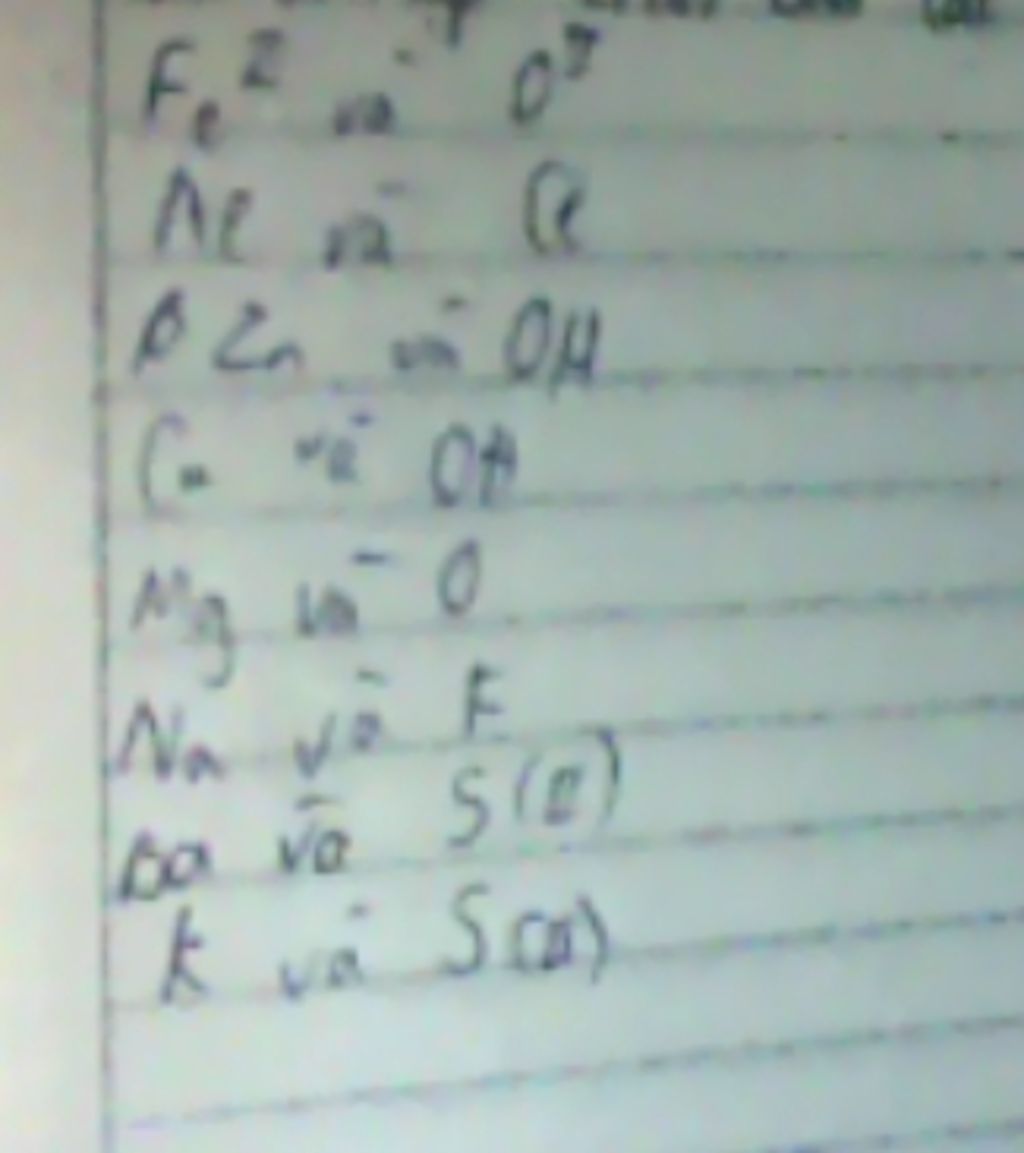 Fe II và O II
Al và Cl
Zn và OH
Ca và OH
Mg và O
Na và F
Ba và S (II)
K và S (II)